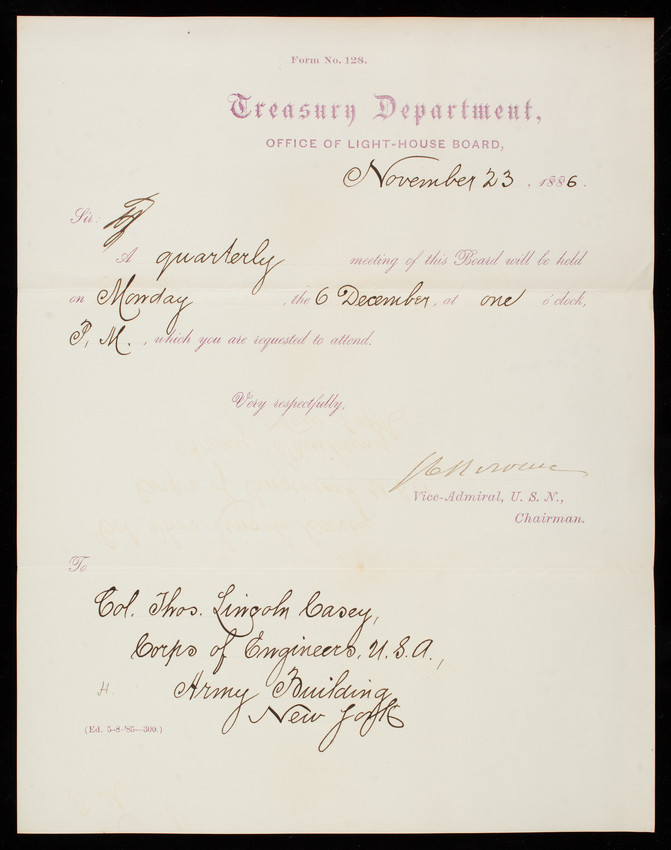 Form No. 128.
Treasury Department,
OFFICE OF LIGHT-HOUSE BOARD,
November 23, 1886.
Sir:
A quarterly meeting of this Board will be held
on Monday, the 6 December, at one o'clock,
P. M., which you are requested to attend.
Very respectfully,
Vice-Admiral, U. S. N.,
Chairman.
To
Col. Thos. Lincoln Casey,
Corps of Engineers, U.S.A.,
H. Army Building
New York
(Ed. 5-8-'85—300.)